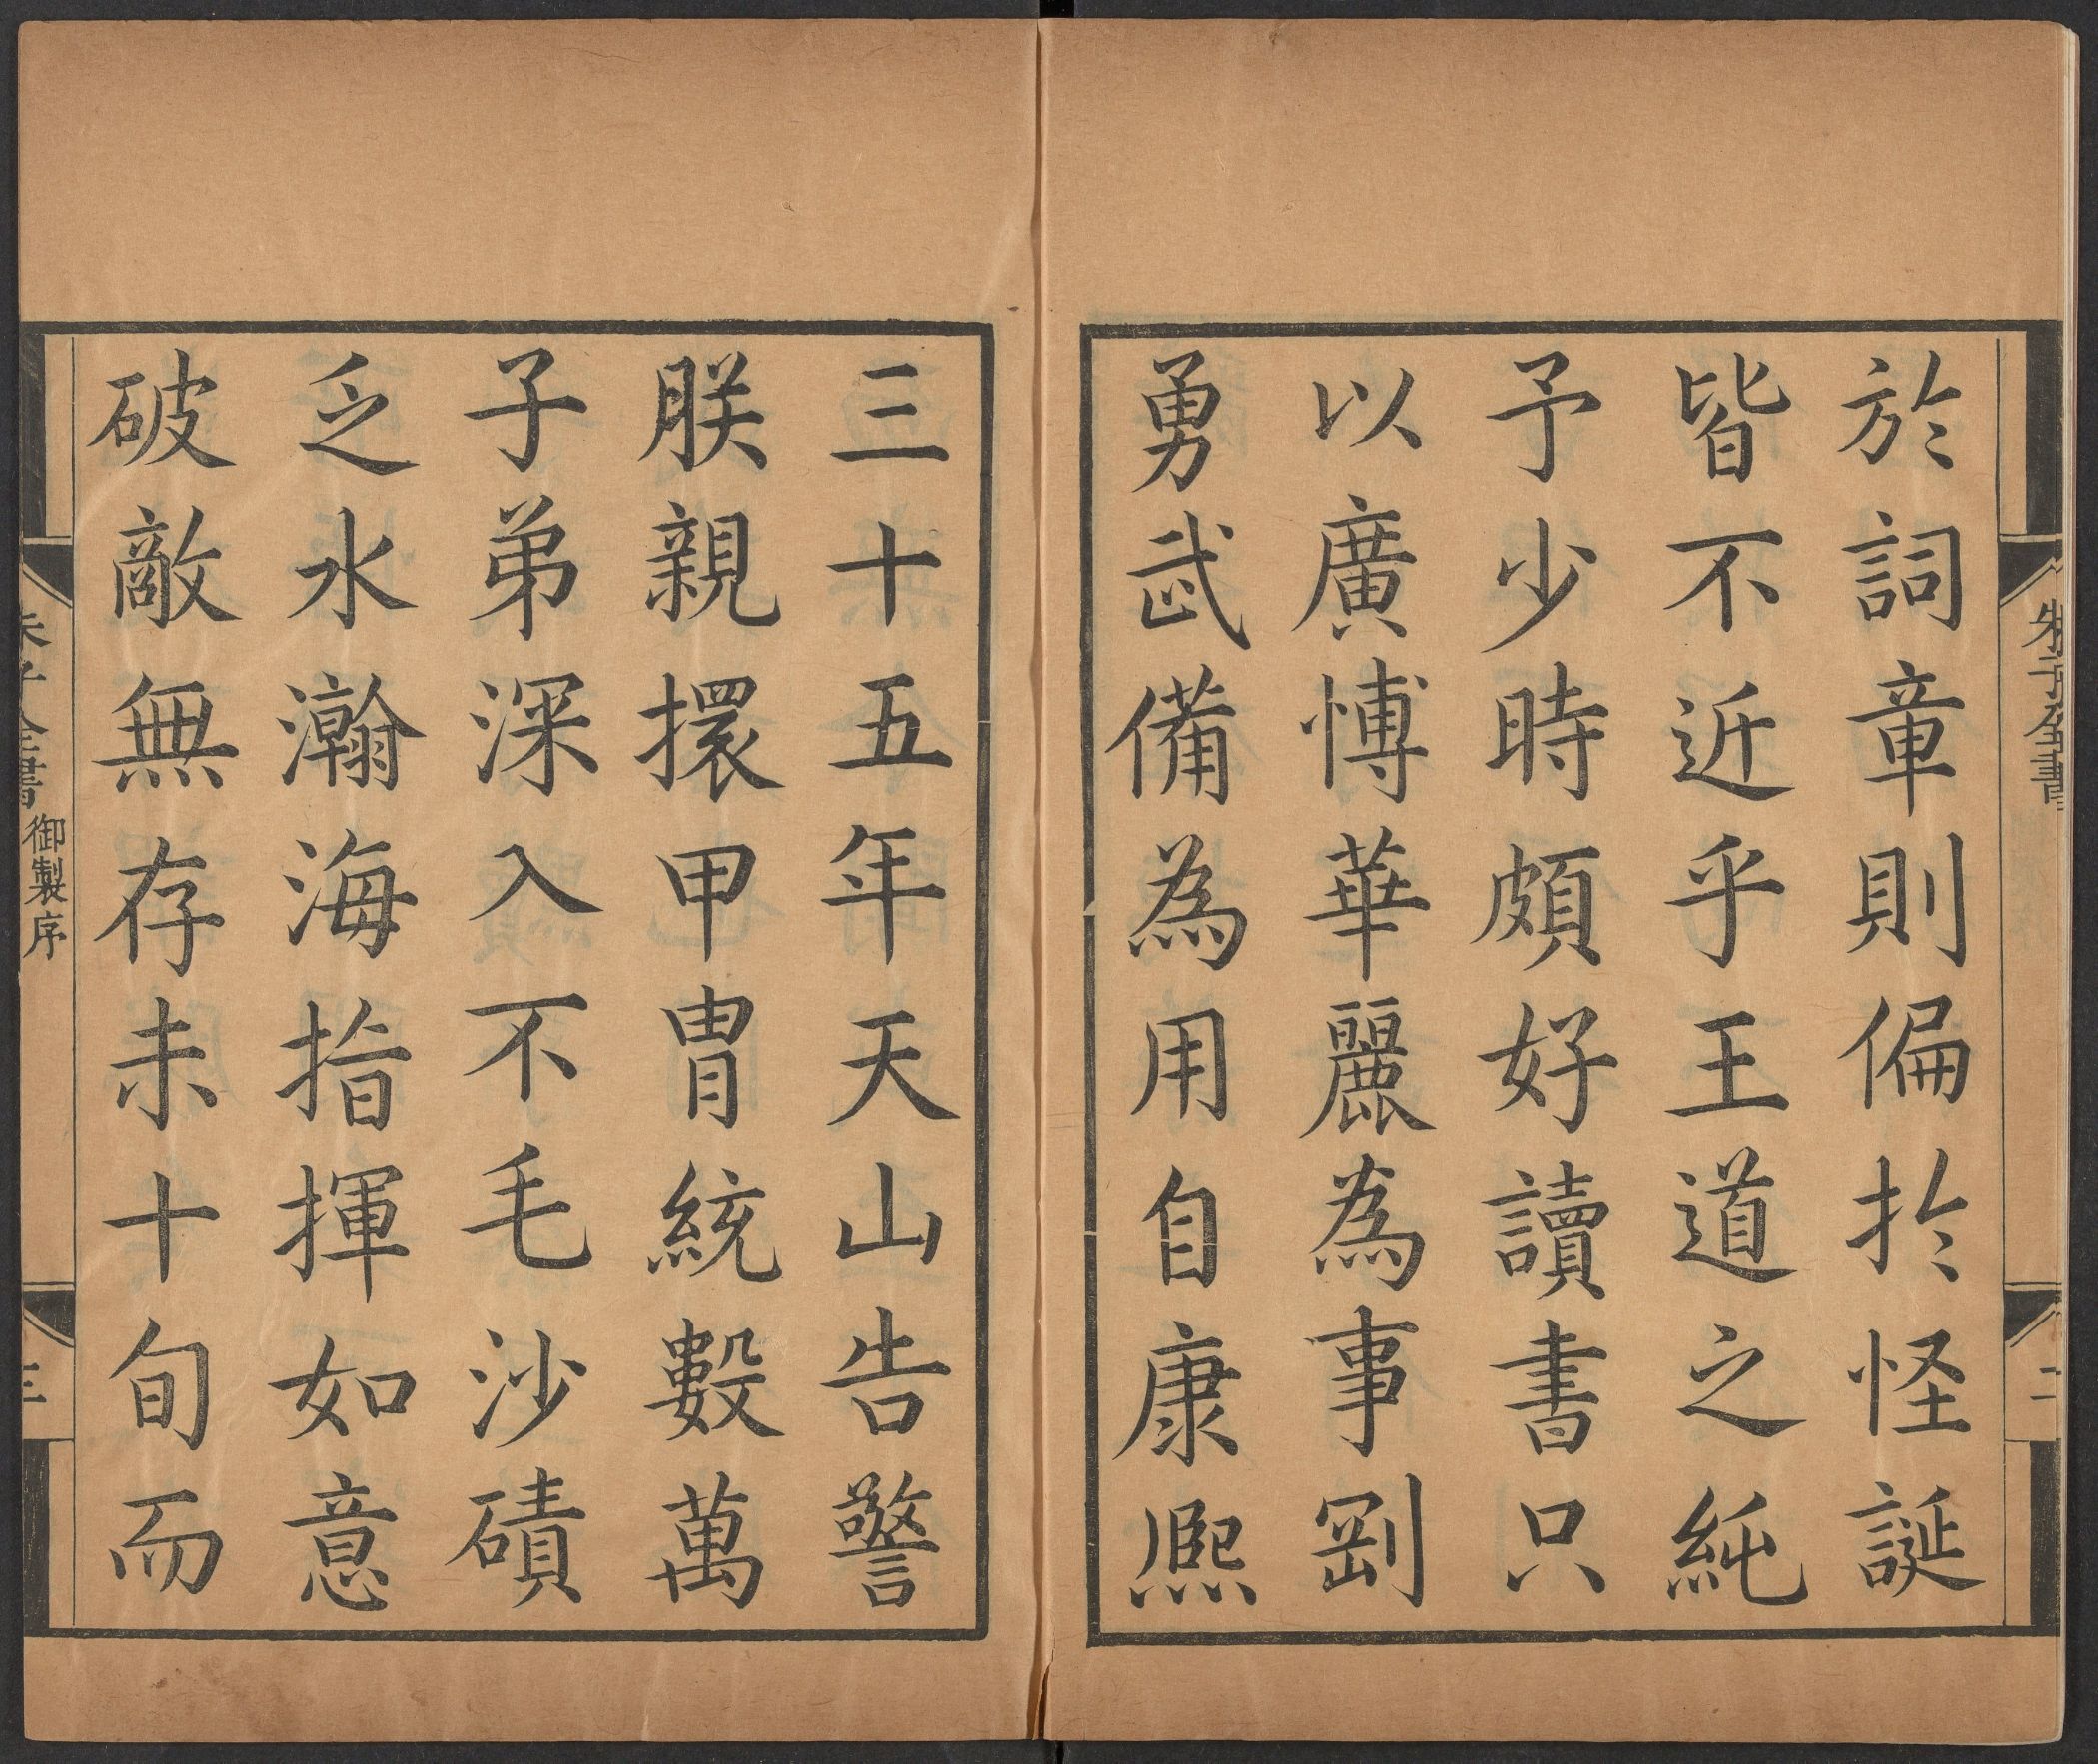 於詞章則偏扵怪誕
皆不近乎王道之純
予少時頗好讀書只
以廣愽華麗為事剛
勇武備為用自康熈
三十五年天山告警
朕親擐甲冑統數萬
子弟深入不毛沙磧
乏水瀚海指揮如意
破敵無存未十旬而
朱子全書
二
朱子全書 御製序
三